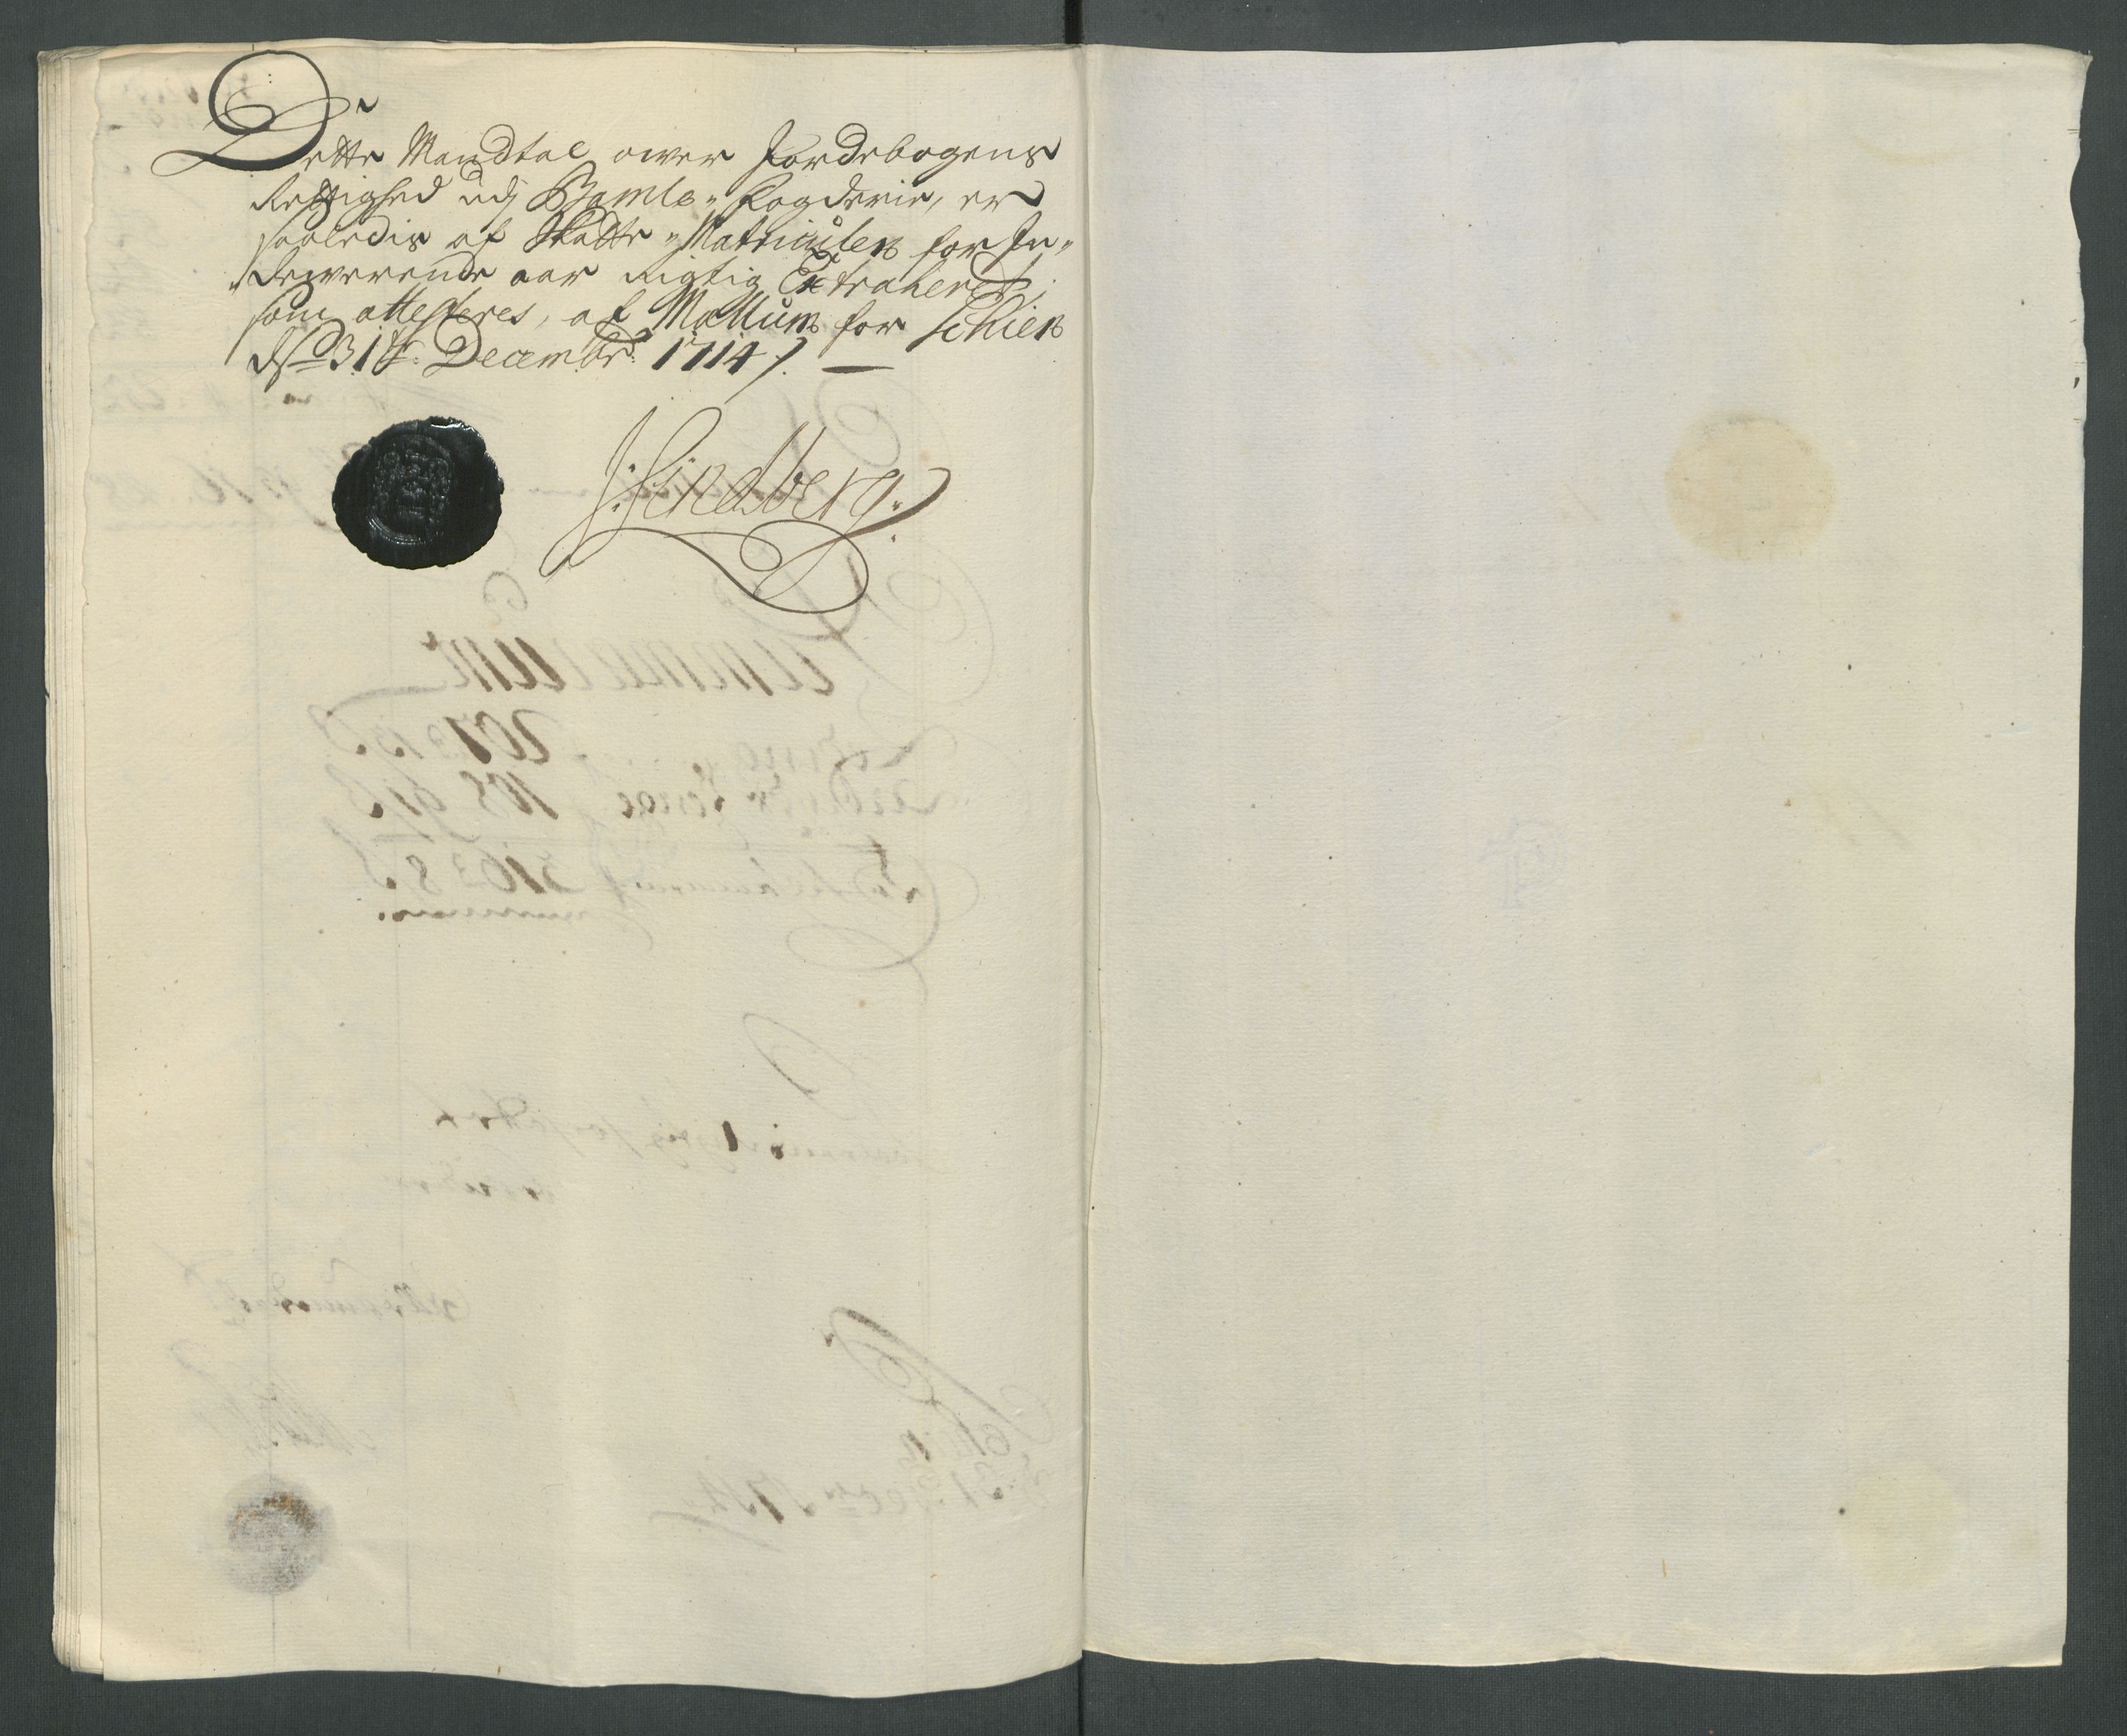 Dette Mandtal ower Jordebogens
Rettighed udj Bamle Fogderie, er
saaledis af Skatte Matriculen for In„
„dewerende aar rigtig Extraherit,
som attesteres, af Mællum for Schien
dend 31te Decembr: 1714 /. —
J: Lindberg.